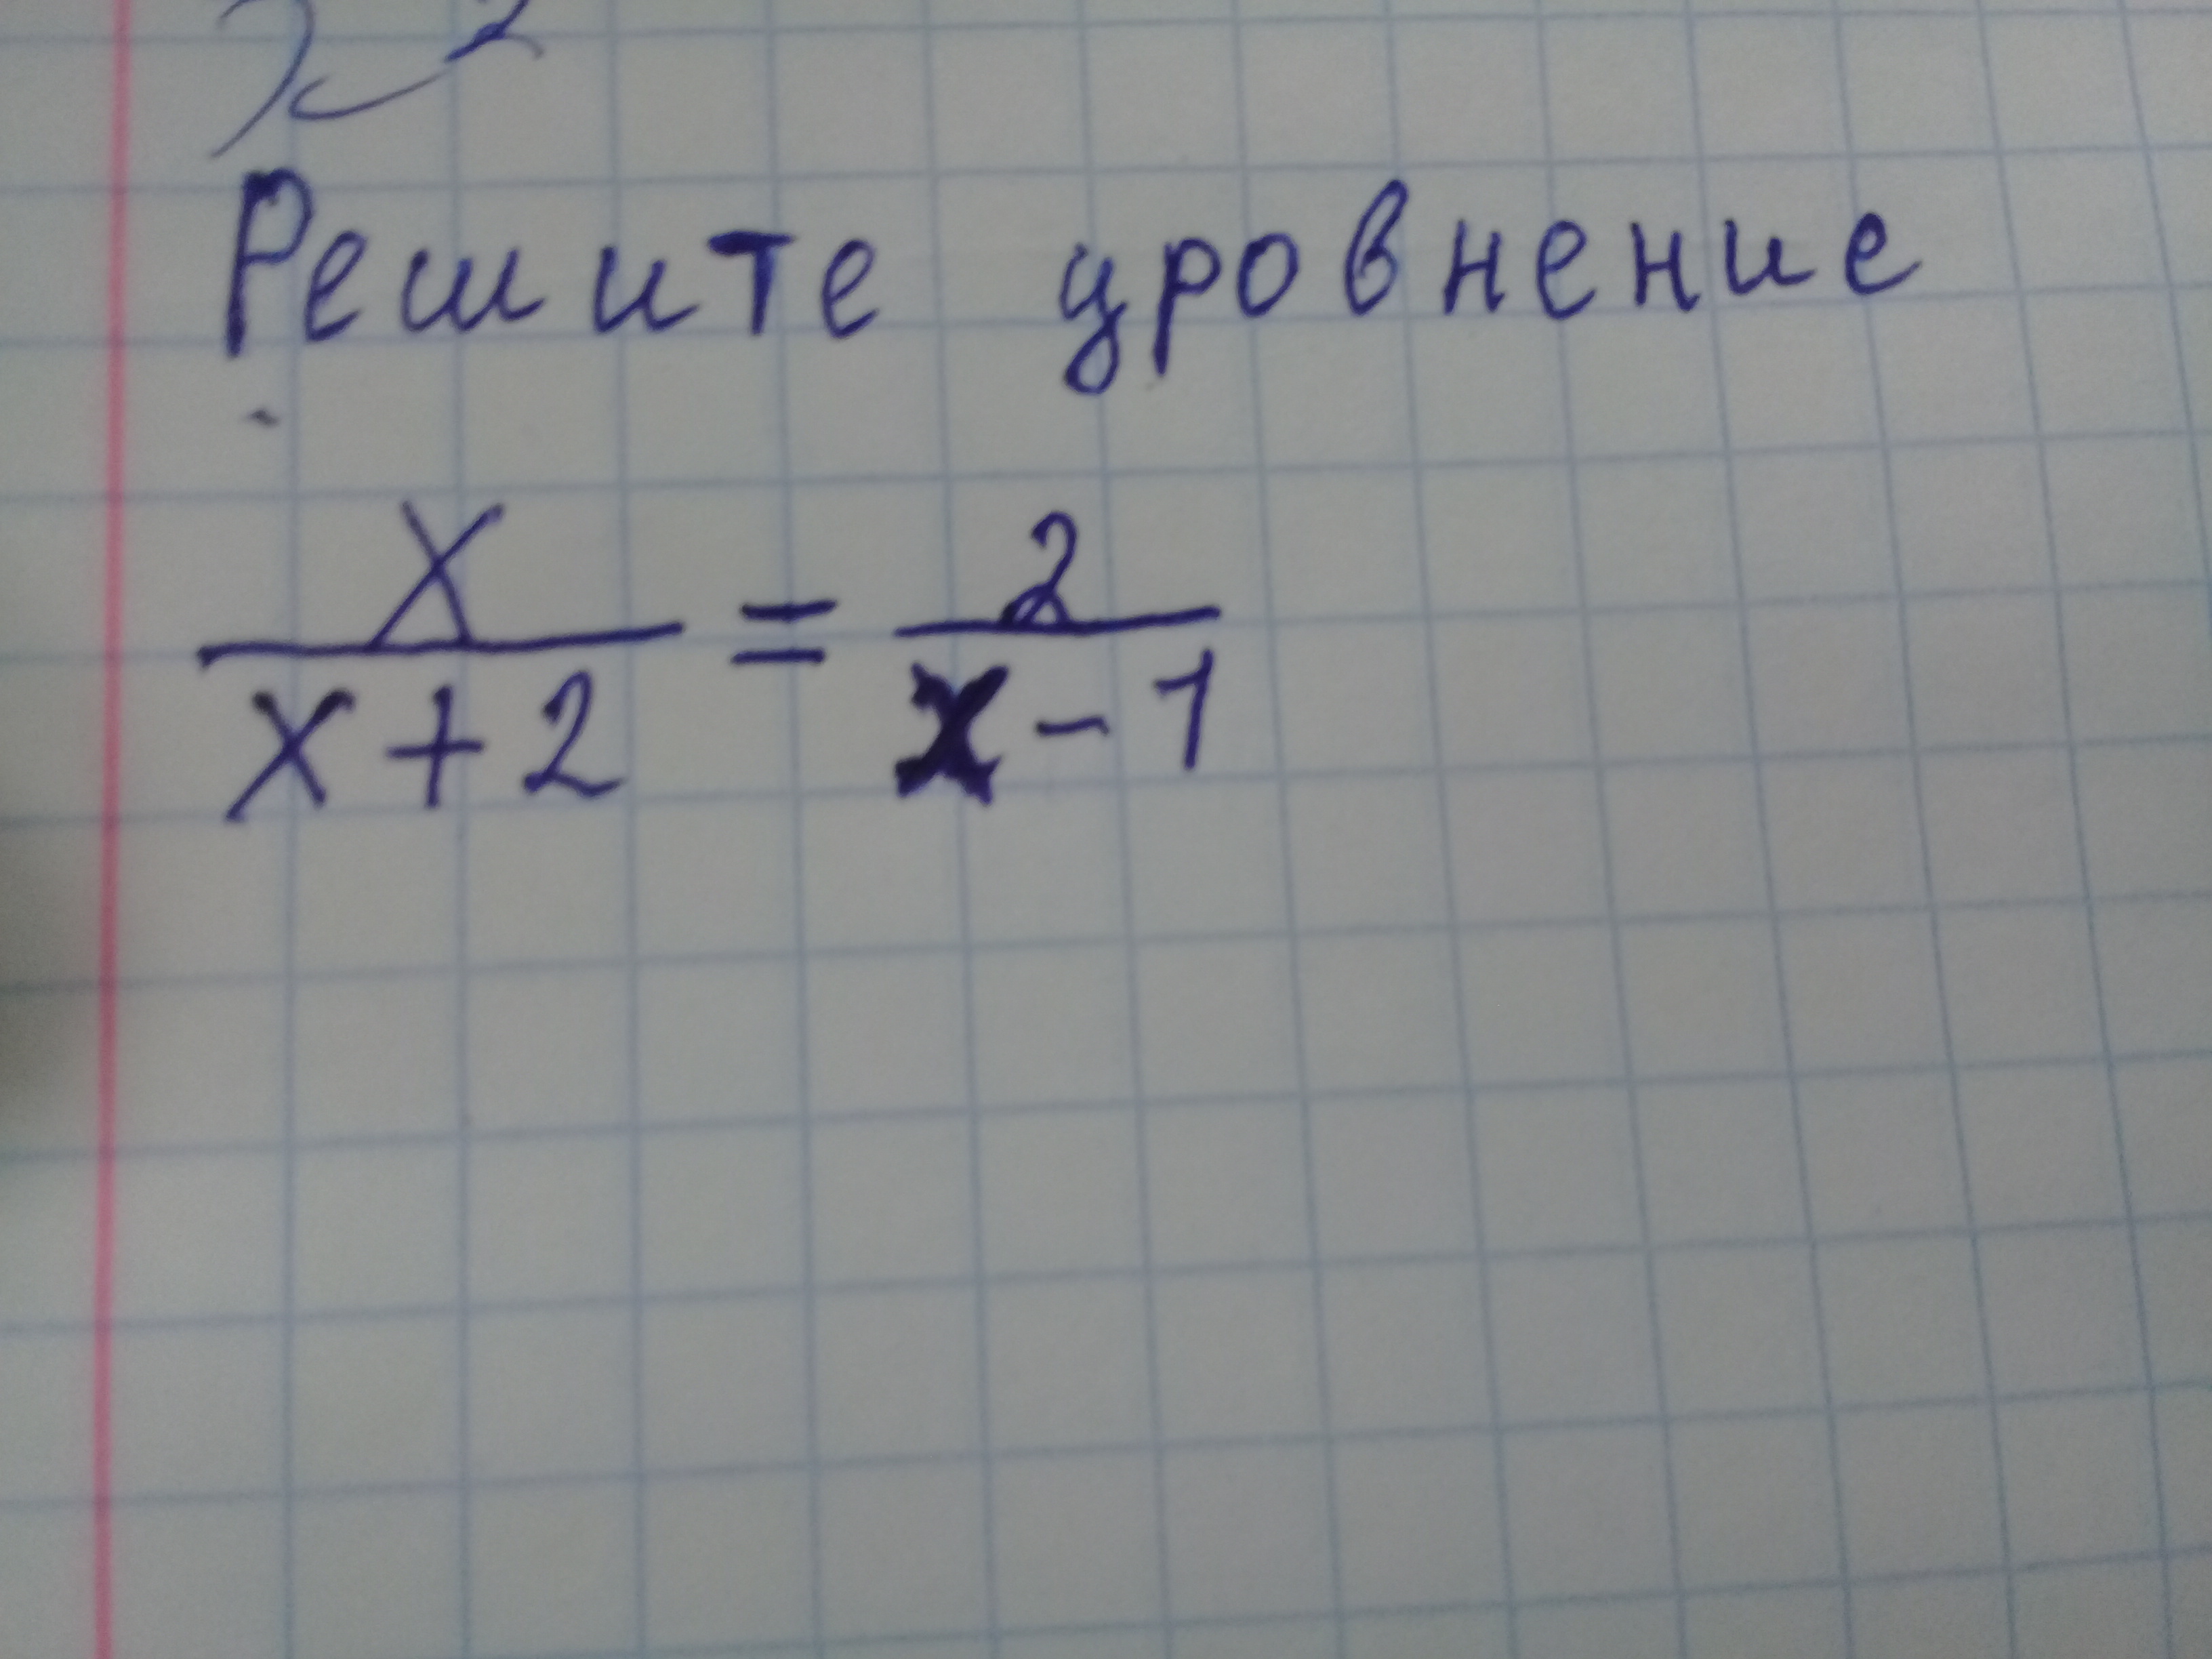 2
Решите уровнение
x/(x+2) = 2/(x-1)